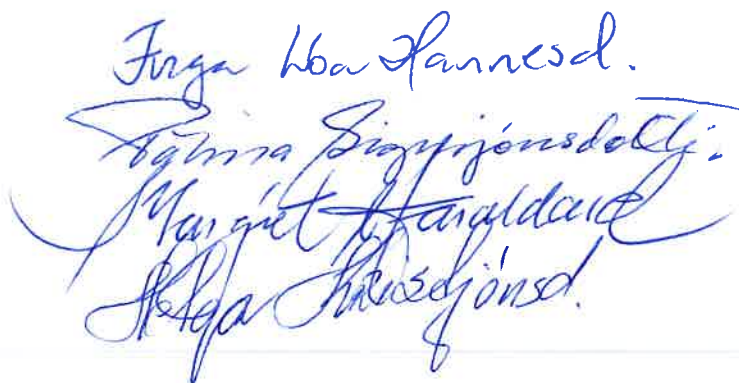 Inga Lóa Hannesd.
Pálína Sigurjónsdóttir.
Margrét Haraldsd
Helga Kristjónsd.